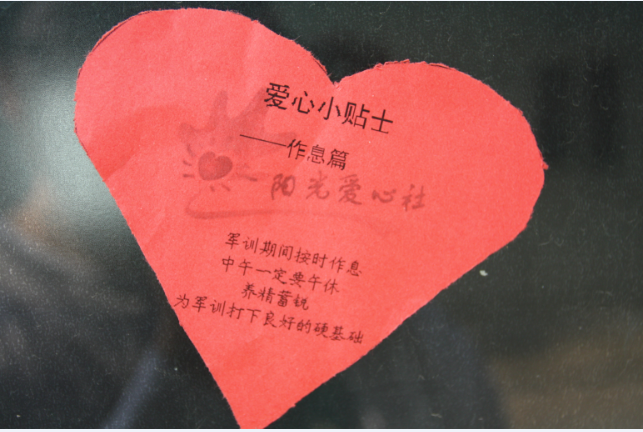 爱心小贴士
——作息篇
阳光爱心社
军训期间按时作息
中午一定要午休
养精蓄锐
为军训打下良好的硬基础